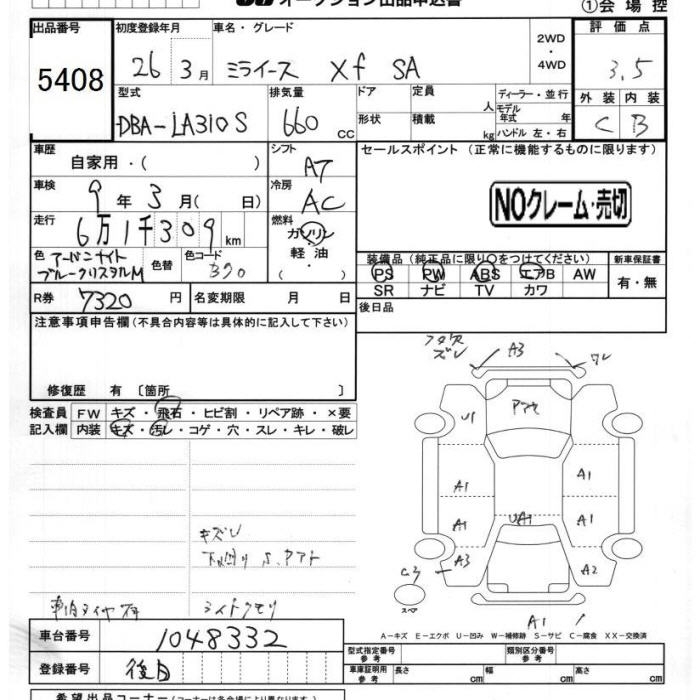 オークション出品申込書
①会場控
出品番号 初度登録年月 車名・グレード 2WD 評価点
5408 26年 3月 ミライース Xf SA ・4WD 3.5
型式 排気量 ドア 定員 ディーラー・並行 外装 内装
DBA-LA310S 660 cc 形状 積載 人 kg モデル年式 年 ハンドル 左・右 C B
車歴 シフト セールスポイント (正常に機能するものに限ります)
自家用・( ) AT
車検 冷房
9年 3月 ( 日) AC NOクレーム・売切
走行 燃料
6万1千309km ガソリン
軽油
・( )
色 色替 色コード 装備品(純正品に限り○をつけてください) 新車保証書
アーバンナイトブルークリスタルM B70 PS PW ABS エアB AW 有・無
SR ナビ TV カワ
R券 7320円 名変期限 月 日 後日品
注意事項申告欄 (不具合内容等は具体的に記入して下さい)
修復歴 有 〔箇所 〕
検査員 FW キズ・飛石・ヒビ割・リペア跡・×要
記入欄 内装 キズ・汚レ・コゲ・穴・スレ・キレ・破レ
ズレ A3 ワレ
U1
A1 A1
UA1
A1 A1
A3 A2
スペア
A1
キズU
下回り S.
ライトクモリ
A-キズ E-エクボ U-凹み W-補修跡 S-サビ C-腐食 XX-交換済
車台番号 1048332
登録番号 後日
型式指定番号 参考 類別区分番号 参考
車庫証明用 参考 長さ cm 幅 cm 高さ cm
希望出品コーナー(コーナーは各会場により異なります)